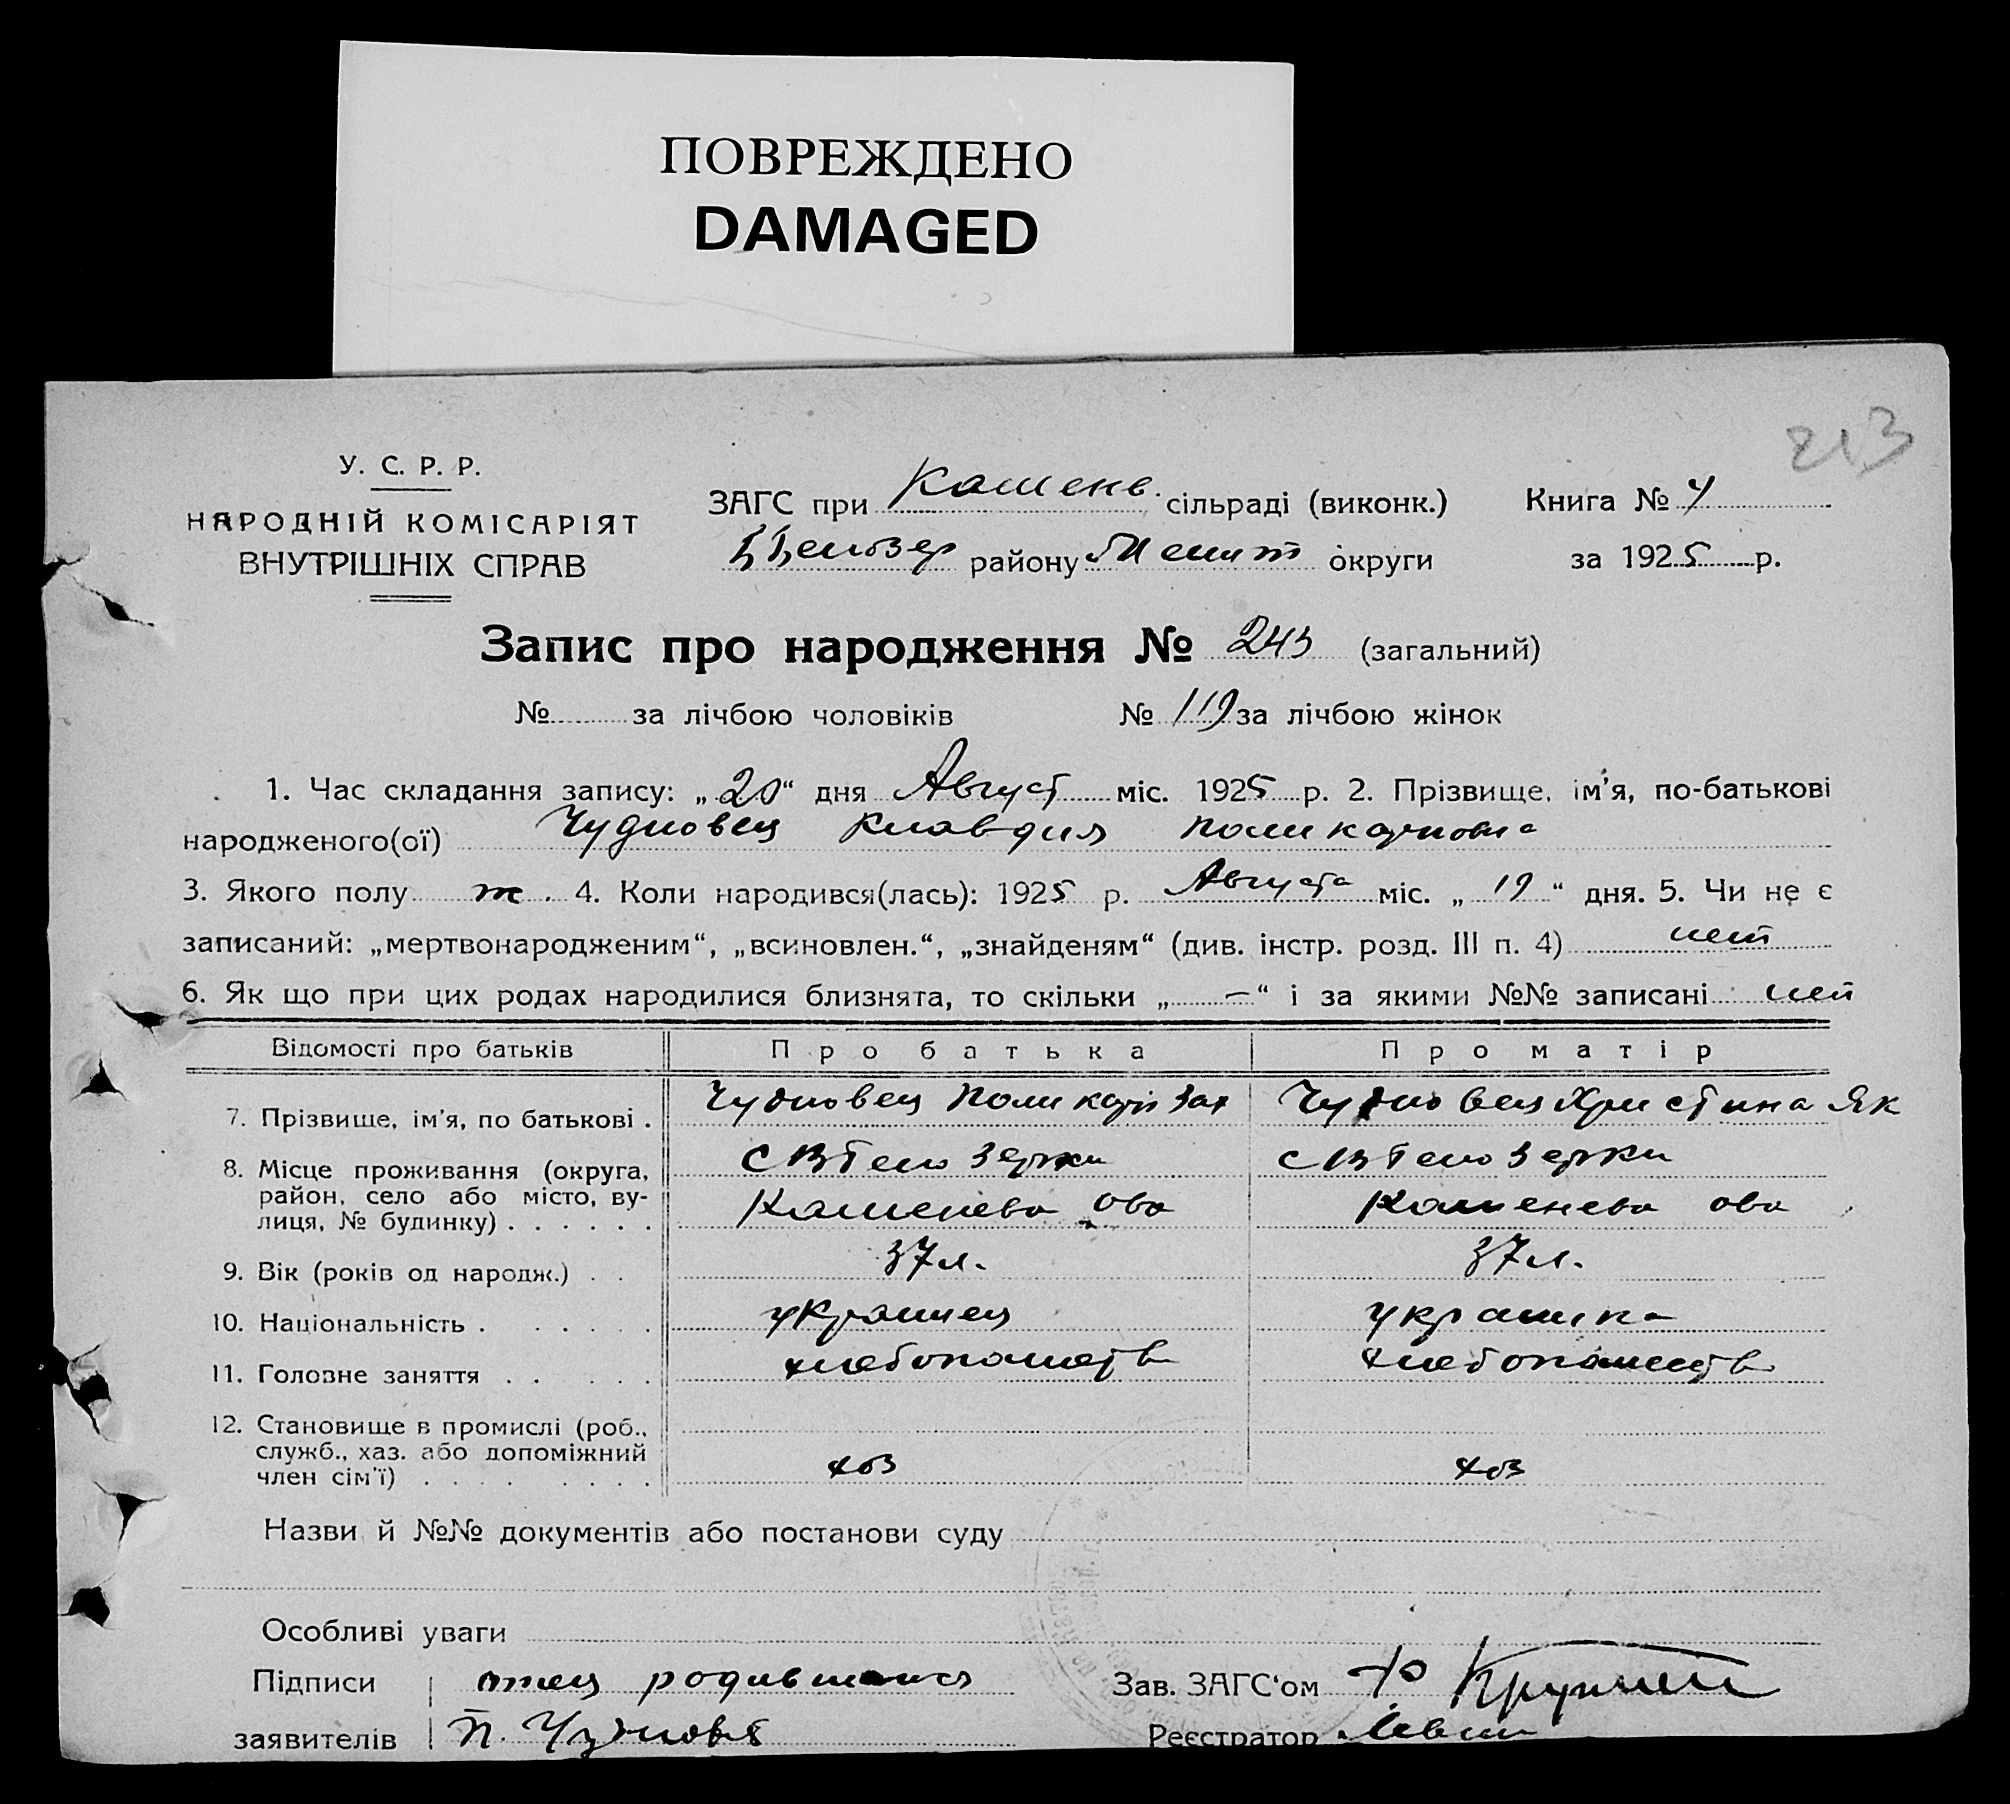 ПОВРЕЖДЕНО
DAMAGED
213
У. С. Р. Р.
НАРОДНІЙ КОМІСАРІЯТ
ВНУТРІШНІХ СПРАВ
ЗАГС при Каменв. сільраді (виконк.) Книга № 4
району Мелит округи за 1925 р.
Запис про народження № 243 (загальний)
№ за лічбою чоловіків № 119 за лічбою жінок
1. Час складання запису: „20“ дня Август міс. 1925 р. 2. Прізвище, ім'я, по-батькові
народженого(ої) Чудновец Клавдия Поликарповна
3. Якого полу ж. 4. Коли народився(лась): 1925 р. Августа міс. „19“ дня. 5. Чи не є
записаний: „мертвонародженим“, „всиновлен.“, „знайденям“ (див. інстр. розд. III п. 4) нет
6. Як що при цих родах народилися близнята, то скільки „—“ і за якими №№ записані нет
Відомості про батьків Про батька Про матір
7. Прізвище, ім'я, по батькові . Чудновец Поликарп Зах Чудновец Христина Як
8. Місце проживання (округа, район, село або місто, вулиця, № будинку) . . . . . . с Белозерки с Белозерки
Каменева ова Каменева ова
9. Вік (років од народж.) . . 37 л. 37 л.
10. Національність . . . . . . украинец украинка
11. Головне заняття . . . . . хлебопашеств хлебопашеств
12. Становище в промислі (роб., служб., хаз. або допоміжний член сім'ї) . . . . . . . . хоз хоз
Назви й №№ документів або постанови суду
Особливі уваги
Підписи отец родившейся Зав. ЗАГС'ом
заявителів П. Чудновец Реєстратор